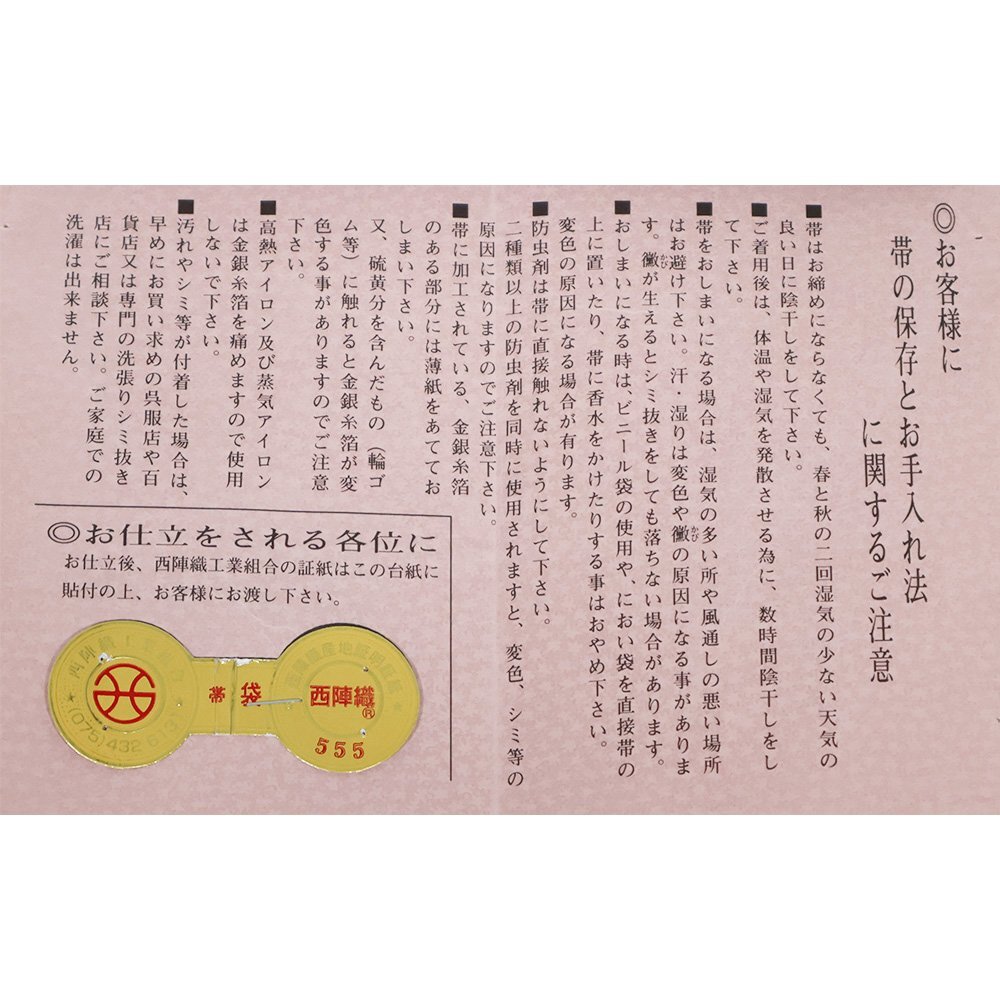 ◎お客様に
帯の保存とお手入れ法
に関するご注意
■帯はお締めにならなくても、春と秋の二回湿気の少ない天気の
良い日に陰干しをして下さい。
■ご着用後は、体温や湿気を発散させる為に、数時間陰干しをし
て下さい。
■帯をおしまいになる場合は、湿気の多い所や風通しの悪い場所
はお避け下さい。汗・湿りは変色や黴の原因になる事がありま
す。黴が生えるとシミ抜きをしても落ちない場合があります。
■おしまいになる時は、ビニール袋の使用や、におい袋を直接帯の
上に置いたり、帯に香水をかけたりする事はおやめ下さい。
変色の原因になる場合が有ります。
■防虫剤は帯に直接触れないようにして下さい。
二種類以上の防虫剤を同時に使用されますと、変色、シミ等の
原因になりますのでご注意下さい。
■帯に加工されている、金銀糸箔
のある部分には薄紙をあててお
しまい下さい。
又、硫黄分を含んだもの（輪ゴ
ム等）に触れると金銀糸箔が変
色する事がありますのでご注意
下さい。
■高熱アイロン及び蒸気アイロン
は金銀糸箔を痛めますので使用
しないで下さい。
■汚れやシミ等が付着した場合は、
早めにお買い求めの呉服店や百
貨店又は専門の洗張りシミ抜き
店にご相談下さい。ご家庭での
洗濯は出来ません。
◎お仕立をされる各位に
お仕立後、西陣織工業組合の証紙はこの台紙に
貼付の上、お客様にお渡し下さい。
西陣織工業組合
(075)432 613
帯 袋
西陣織®
555